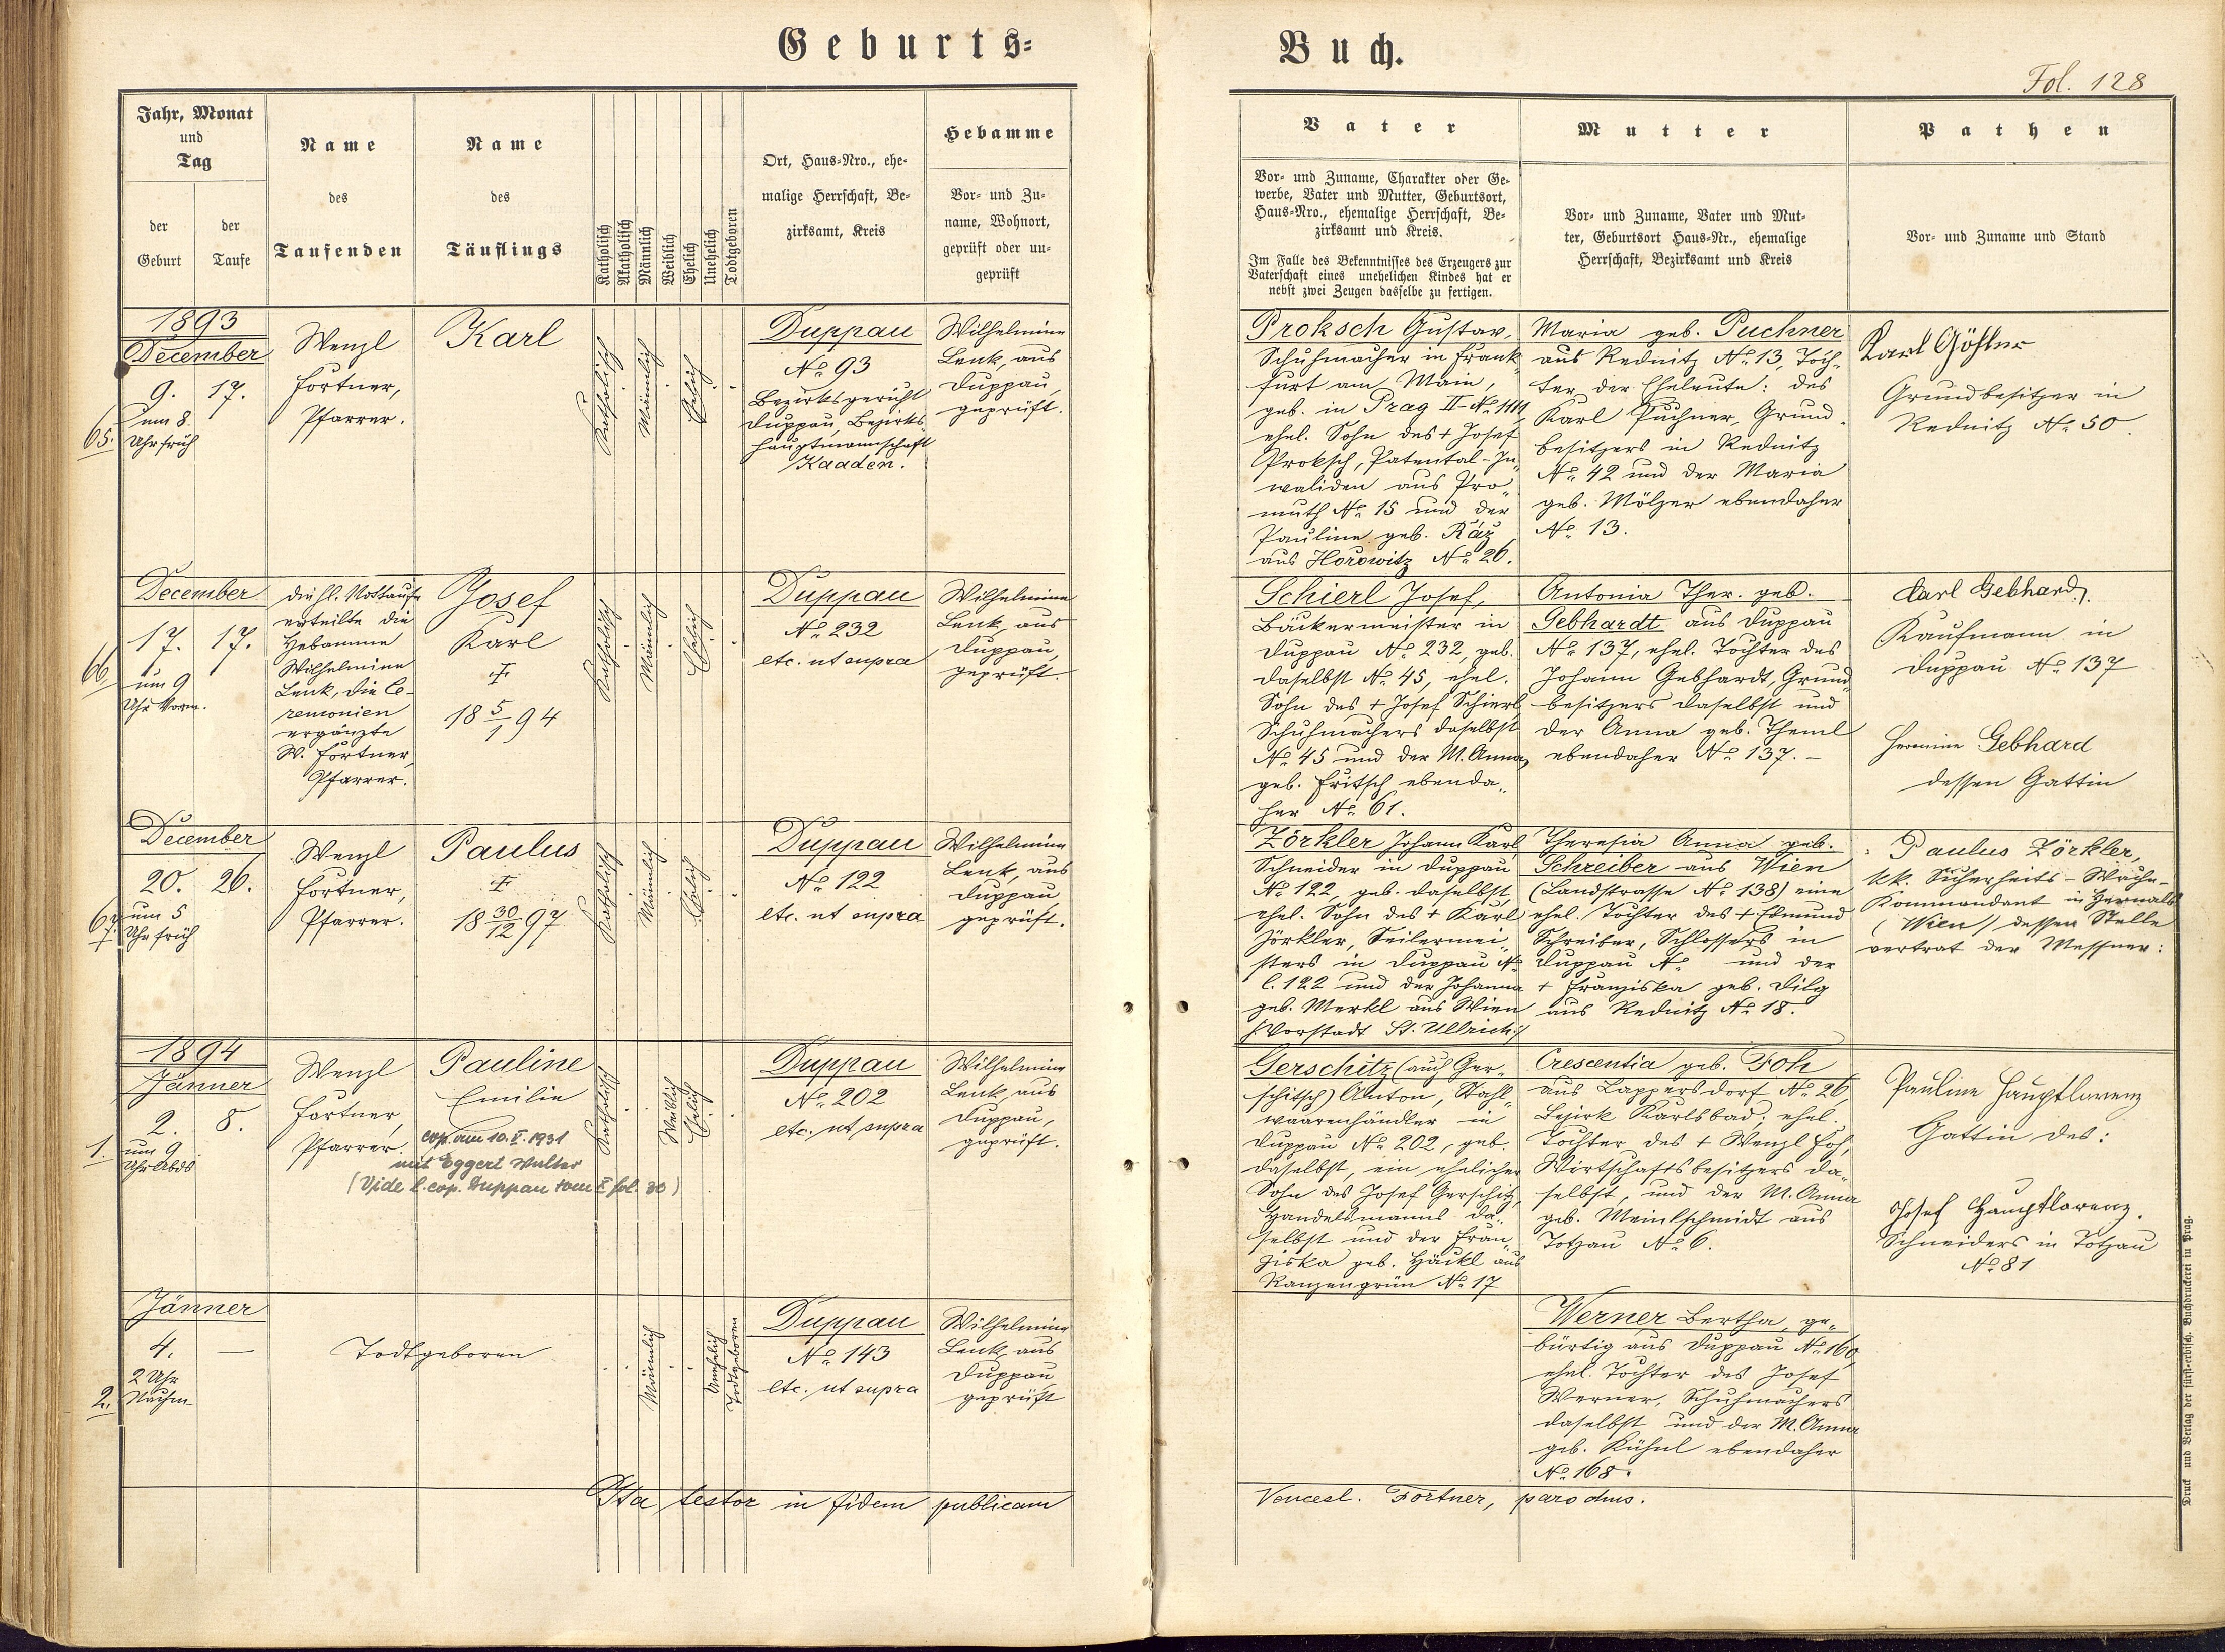 Geburts-
Buch.
Fol. 128
Jahr, Monat
und
Tag
der
Geburt
der
Taufe
Name
des
Taufenden
Name
des
Täuflings
Katholisch
Akatholisch
Männlich
Weiblich
Ehelich
Unehelich
Todtgeboren
Ort, Haus-Nro., ehe-
malige Herrschaft, Be-
zirksamt, Kreis
Hebamme
Vor- und Zu-
name, Wohnort,
geprüft oder un-
geprüft
Vater
Vor- und Zuname, Charakter oder Ge-
werbe, Vater und Mutter, Geburtsort,
Haus-Nro., ehemalige Herrschaft, Be-
zirksamt und Kreis.
Im Falle des Bekenntnisses des Erzeugers zur
Vaterschaft eines unehelichen Kindes hat er
nebst zwei Zeugen dasselbe zu fertigen.
Mutter
Vor- und Zuname, Vater und Mut-
ter, Geburtsort Haus-Nr., ehemalige
Herrschaft, Bezirksamt und Kreis
Pathen
Vor- und Zuname und Stand
1893
December
9. 17.
um 8
Uhr früh
65.
Wenzl
Fortner,
Pfarrer.
Karl
Katholisch
Männlich
Ehelich
Duppau
No. 93
Bezirksgericht
Duppau, Bezirks-
hauptmannschaft
Kaaden.
Wilhelmine
Lenk, aus
Duppau,
geprüft.
Proksch Gustav,
Schuhmacher in Frank-
furt am Main,
geb. in Prag II-No. 1111
ehel. Sohn des + Josef
Proksch, Patental-In-
validen aus Pro-
muth No. 15 und der
Pauline geb. Ráz
aus Horowitz No. 26.
Maria geb. Puchner
aus Rednitz No. 13, Toch-
ter der Eheleute: des
Karl Puchner, Grund-
besitzers in Rednitz
No. 42 und der Maria
geb. Mölzer ebendaher
No. 13.
Karl Gößler
Grundbesitzer in
Rednitz No. 50.
December
17. 17.
um 9
Uhr Vorm.
66.
die hl. Nottaufe
erteilte die
Hebamme
Wilhelmine
Lenk, die Ce-
remonien
ergänzte
W. Fortner,
Pfarrer.
Josef
Karl
+
18 5/1 94
Katholisch
Männlich
Ehelich
Duppau
No. 232
etc. ut supra
Wilhelmine
Lenk, aus
Duppau,
geprüft.
Schierl Josef,
Bäckermeister in
Duppau No. 232, geb.
daselbst No. 45, ehel.
Sohn des + Josef Schierl
Schuhmachers daselbst
No. 45 und der M. Anna
geb. Fritsch ebenda-
her No. 61.
Antonia Ther. geb.
Gebhardt aus Duppau
No. 137, ehel. Tochter des
Johann Gebhardt, Grund-
besitzers daselbst und
der Anna geb. Theml
ebendaher No. 137. –
Carl Gebhard,
Kaufmann in
Duppau No. 137
Hermine Gebhard
dessen Gattin
December
20. 26.
um 5
Uhr früh
67.
Wenzl
Fortner,
Pfarrer.
Paulus
+
18 30/12 97
Katholisch
Männlich
Ehelich
Duppau
No. 122
etc. ut supra
Wilhelmine
Lenk, aus
Duppau,
geprüft.
Zörkler Johann Karl
Schneider in Duppau
No. 122, geb. daselbst,
ehel. Sohn des + Karl
Zörkler, Seilermei-
sters in Duppau No
C. 122 und der Johanna
geb. Merkl aus Wien
/:Vorstadt St. Ullrich:/
Theresia Anna geb.
Schreiber aus Wien
(Landstrasse No. 138) eine
ehel. Tochter des + Edmund
Schreiber, Schlossers in
Duppau No. und der
+ Franziska geb. Dilg
aus Rednitz No. 18.
Paulus Zörkler,
kk. Sicherheits-Wache-
Kommandant in Hernals
(Wien) dessen Stelle
vertrat der Messner:
1894
Jänner
2. 8.
um 9
Uhr Abds
1.
Wenzl
Fortner,
Pfarrer.
Pauline
Emilie
cop. am 10. V. 1931
mit Eggert Walter
(Vide l. cop. Duppau tom X fol. 30)
Katholisch
Weiblich
Ehelich
Duppau
No. 202
etc. ut supra
Wilhelmine
Lenk, aus
Duppau,
geprüft.
Gerschitz (auch Ger-
schitsch) Anton, Stahl-
waarenhändler in
Duppau No. 202, geb.
daselbst, ein ehelicher
Sohn des Josef Gerschitz,
Handelsmanns da-
selbst und der Fran-
ziska geb. Häckl aus
Ranzengrün No. 17
Crescentia geb. Foh
aus Lappersdorf No. 26
Bezirk Karlsbad, ehel.
Tochter des + Wenzl Foh,
Wirtschaftsbesitzers da-
selbst, und der M. Anna
geb. Meinlschmidt aus
Totzau No. 6.
Pauline Hauptlorenz
Gattin des:
Josef Hauptlorenz.
Schneiders in Totzau
No. 81
Jänner
4. —
2 Uhr
Nachm
2.
Todtgeboren
Männlich
Unehelich
Todtgeboren
Duppau
No. 143
etc. ut supra
Wilhelmine
Lenk, aus
Duppau
geprüft
Werner Bertha, ge-
bürtig aus Duppau No. 160
ehel. Tochter des Josef
Werner, Schuhmachers
daselbst und der M. Anna
geb. Kühnl ebendaher
No. 168.
Ita testor in fidem publicam
Vencesl. Fortner, parochus.
Druck und Verlag der fürst-erzbisch. Buchdruckerei in Prag.